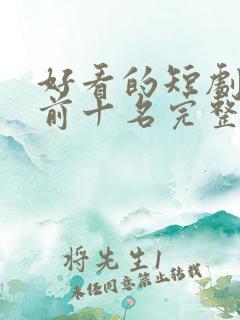 好看的短劇
前十名完整
将先生1
未经同意禁止转载